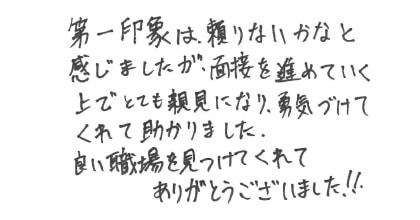 第一印象は、頼りないかなと
感じましたが、面接を進めていく
上でとても親見になり、勇気づけて
くれて助かりました.
良い職場を見つけてくれて
ありがとうございました!!